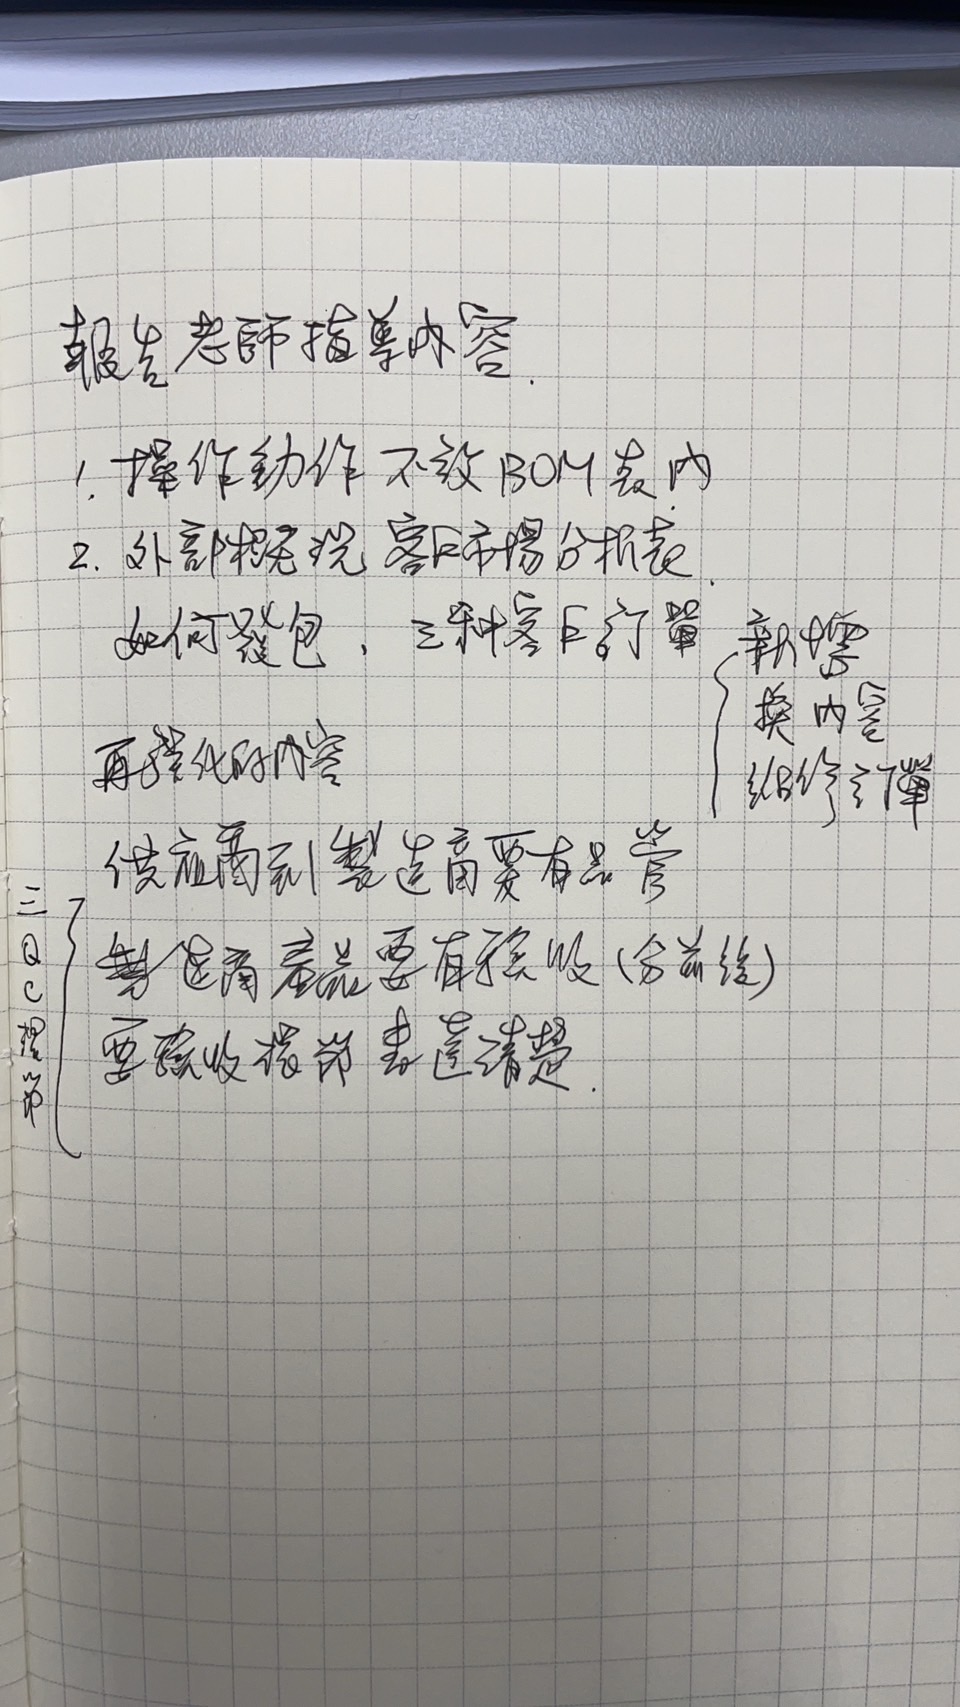 報告老師指導內容.
1. 操作動作不放BOM表內
2. 外部概況 客戶市場分析表.
如何發包、三種客戶訂單
新增
換內容
維修訂單
再強化的內容
供應商到製造商要有品管
製造商產品要有驗收(分前後)
要驗收環節表達清楚.
三QC環節